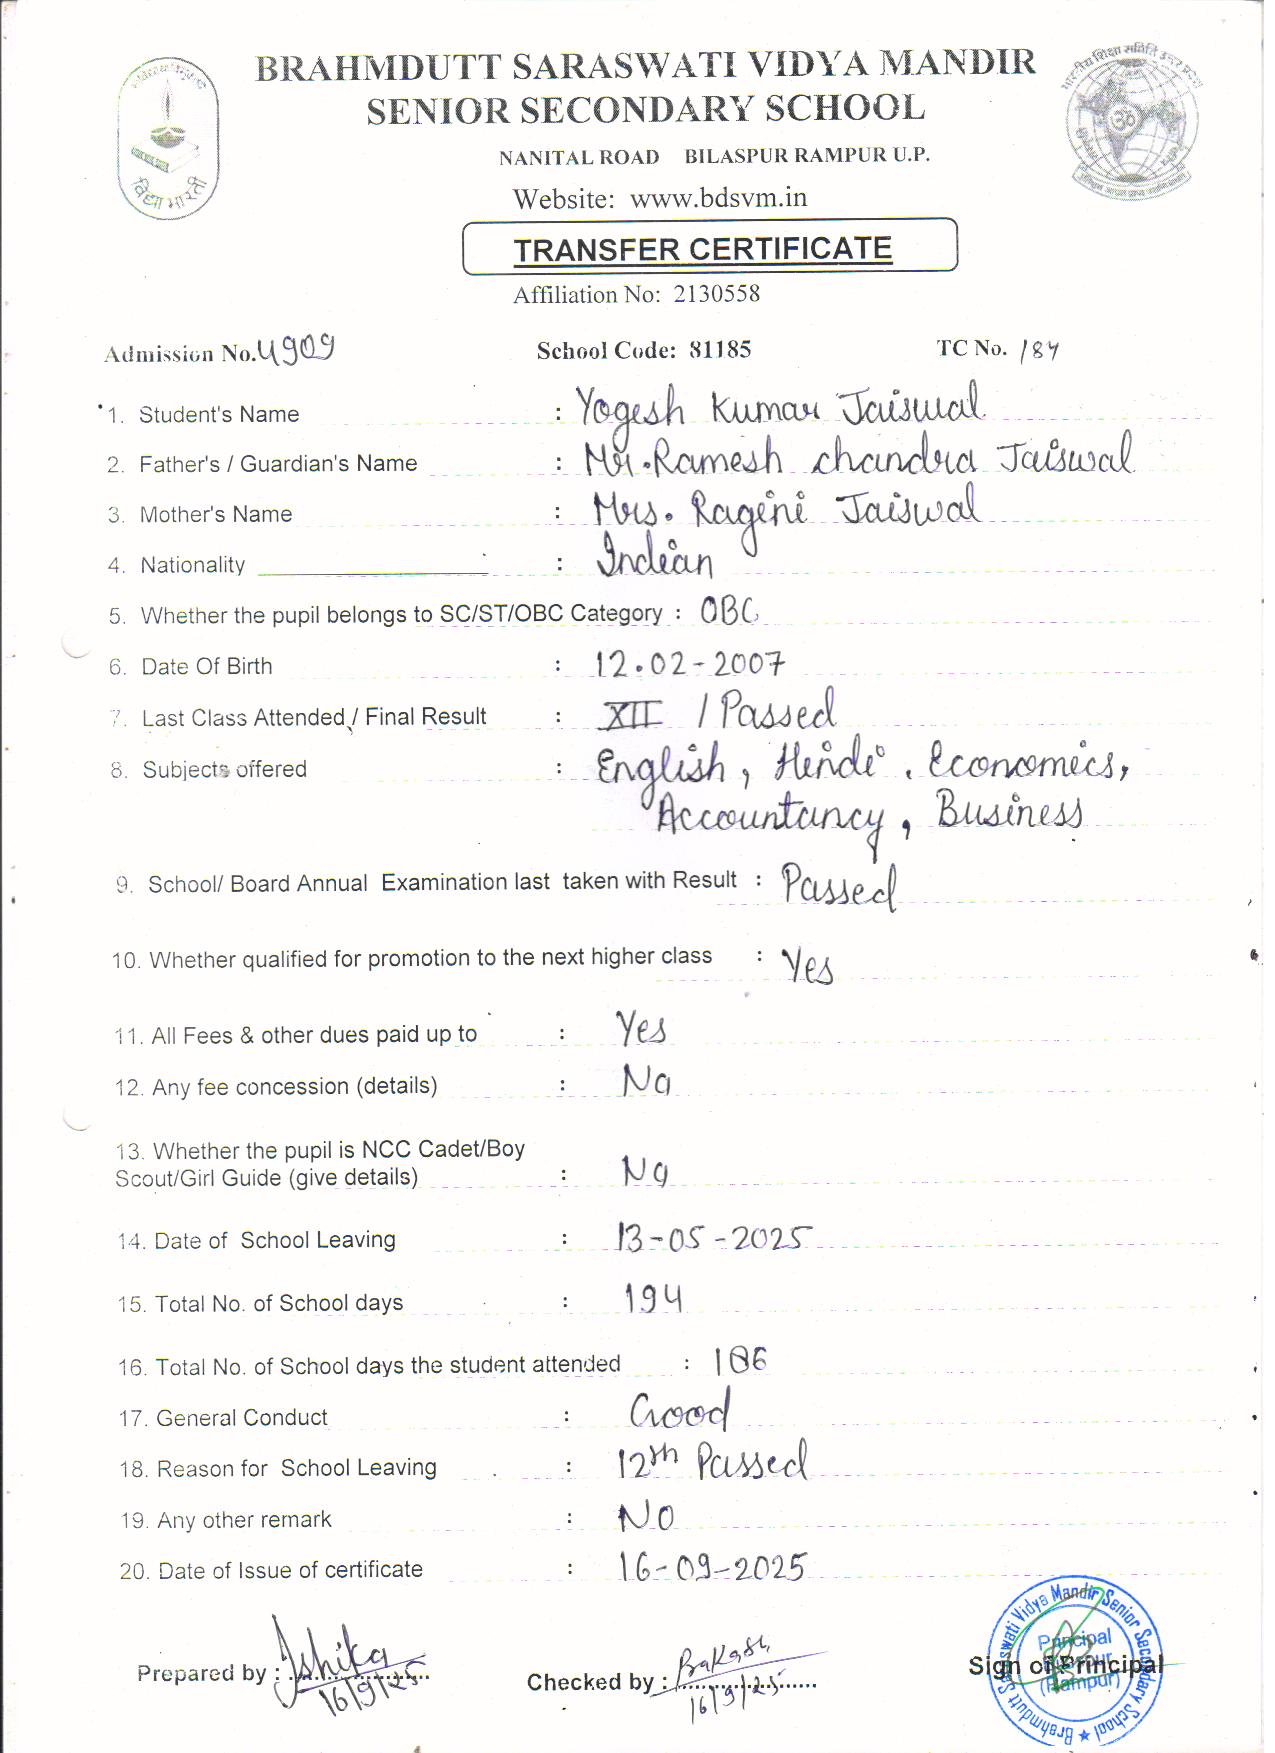 BRAHMDUTT SARASWATI VIDYA MANDIR
SENIOR SECONDARY SCHOOL
NANITAL ROAD BILASPUR RAMPUR U.P.
विद्या भारती
Website: www.bdsvm.in
TRANSFER CERTIFICATE
Affiliation No: 2130558
Admission No. 4909 School Code: 81185 TC No. 184
1. Student's Name : Yogesh Kumar Jaiswal
2. Father's / Guardian's Name : Mr. Ramesh chandra Jaiswal
3. Mother's Name : Mrs. Ragini Jaiswal
4. Nationality : Indian
5. Whether the pupil belongs to SC/ST/OBC Category : OBC
6. Date Of Birth : 12.02-2007
7. Last Class Attended / Final Result : XII / Passed
8. Subjects offered : English, Hindi, Economics,
Accountancy, Business
9. School/ Board Annual Examination last taken with Result : Passed
10. Whether qualified for promotion to the next higher class : Yes
11. All Fees & other dues paid up to : Yes
12. Any fee concession (details) : No
13. Whether the pupil is NCC Cadet/Boy
Scout/Girl Guide (give details) : No
14. Date of School Leaving : 13-05-2025
15. Total No. of School days : 194
16. Total No. of School days the student attended : 186
17. General Conduct : Good
18. Reason for School Leaving : 12th Passed
19. Any other remark : NO
20. Date of Issue of certificate : 16-09-2025
Prepared by : Ishika Checked by : Sign of Principal
16/9/25 16/9/25
Brahmdutt Saraswati Vidya Mandir Senior Secondary School
Principal
(Rampur)